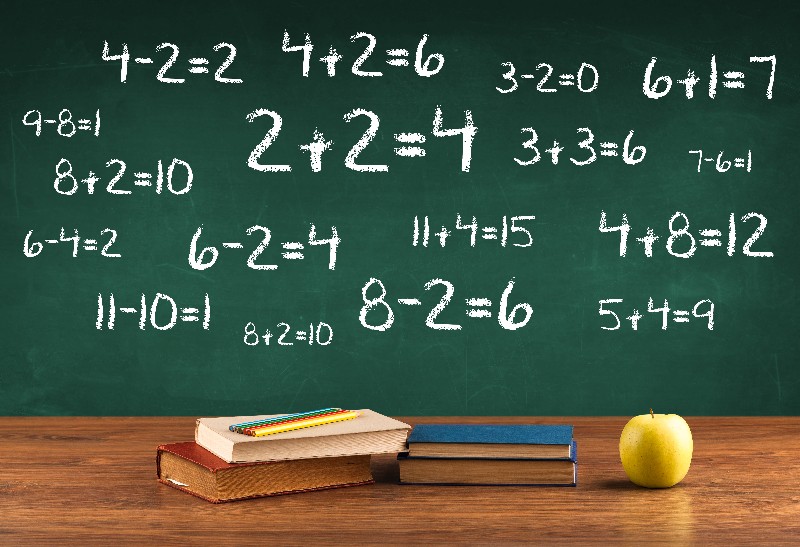 4-2=2
4+2=6
3-2=0
6+1=7
9-8=1
2+2=4
3+3=6
7-6=1
8+2=10
6-4=2
6-2=4
11+4=15
4+8=12
11-10=1
8+2=10
8-2=6
5+4=9